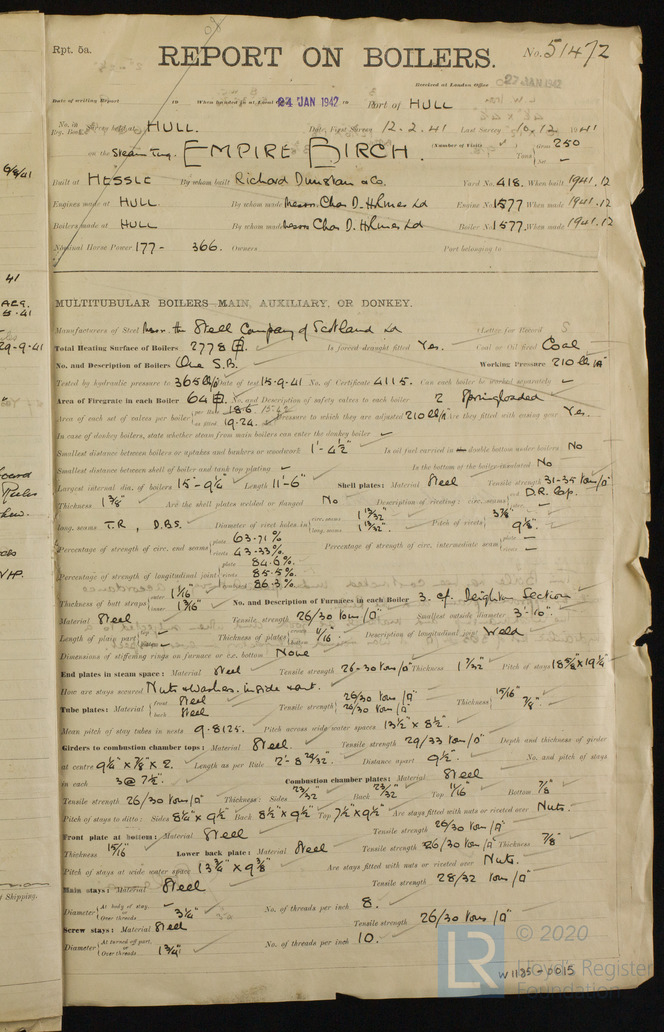 Rpt. 5a.
REPORT ON BOILERS.
No. 51472
Received at London Office 27 JAN 1942
Date of writing Report 19 When handed in at Local Office 24 JAN 1942 19 Port of HULL
No. in Reg. Book. Survey held at HULL. Date, First Survey 12.2.41 Last Survey 10.12.1941
on the Steam Tug. EMPIRE BIRCH. (Number of Visits ) Tons Gross 250 Net -
Built at HESSLE By whom built Richard Dunston & Co. Yard No. 418. When built 1941.12
Engines made at HULL By whom made Messrs Chas D. Holmes Ld Engine No. 1577 When made 1941.12
Boilers made at HULL By whom made Messrs Chas D. Holmes Ld Boiler No. 1577. When made 1941.12
Nominal Horse Power 177 - 366. Owners Port belonging to
MULTITUBULAR BOILERS MAIN, AUXILIARY, OR DONKEY.
Manufacturers of Steel Messrs The Steel Company of Scotland Ld (Letter for Record S
Total Heating Surface of Boilers 2778 Is forced draught fitted Yes. Coal or Oil fired Coal
No. and Description of Boilers One S.B. Working Pressure 210 lb
Tested by hydraulic pressure to 365 lb Date of test 15.9.41 No. of Certificate 4115. Can each boiler be worked separately -
Area of Firegrate in each Boiler 64 No. and Description of safety valves to each boiler 2 Springloaded
Area of each set of valves per boiler per Rule 18.6 as fitted 19.24. Pressure to which they are adjusted 210 lb Are they fitted with easing gear Yes.
In case of donkey boilers, state whether steam from main boilers can enter the donkey boiler -
Smallest distance between boilers or uptakes and bunkers or woodwork 1'-4½" Is oil fuel carried in the double bottom under boilers No
Smallest distance between shell of boiler and tank top plating - Is the bottom of the boiler insulated No
Largest internal dia. of boilers 15'-9¼" Length 11'-6" Shell plates: Material Steel Tensile strength 31-35 tons/□"
Thickness 1⅜" Are the shell plates welded or flanged No Description of riveting: circ. seams end D.R. Lap. inter. -
long. seams T.R., D.B.S. Diameter of rivet holes in circ. seams 1 13/32" long. seams 1 13/32". Pitch of rivets 3⅞" 9⅛".
Percentage of strength of circ. end seams plate 63.71% rivets 43.33%. Percentage of strength of circ. intermediate seam plate - rivets -
Percentage of strength of longitudinal joint plate 84.6% rivets 85.5% combined 86.3%
Thickness of butt straps outer 1 1/16" inner 1 3/16" No. and Description of Furnaces in each Boiler 3. cf. Deighton Section
Material Steel Tensile strength 26/30 tons/□" Smallest outside diameter 3'-10".
Length of plain part top - bottom - Thickness of plates crown bottom 11/16" Description of longitudinal joint Weld
Dimensions of stiffening rings on furnace or c.c. bottom None
End plates in steam space: Material Steel Tensile strength 26-30 tons/□" Thickness 1 7/32" Pitch of stays 18⅝" x 19¼"
How are stays secured Nuts & Washers. inside & out.
Tube plates: Material front Steel back Steel Tensile strength 26/30 tons/□" 26/30 tons/□" Thickness 15/16" ⅞".
Mean pitch of stay tubes in nests 9.8125. Pitch across wide water spaces 13½" x 8½".
Girders to combustion chamber tops: Material Steel. Tensile strength 29/33 tons/□" Depth and thickness of girder
at centre 9¼" x ⅞" x 2. Length as per Rule 2'-8 29/32". Distance apart 9½". No. and pitch of stays
in each 3 @ 7½". Combustion chamber plates: Material Steel
Tensile strength 26/30 tons/□" Thickness: Sides 23/32" Back 23/32" Top 11/16" Bottom ⅞"
Pitch of stays to ditto: Sides 8¼" x 9½" Back 8½" x 9½" Top 7½" x 9½" Are stays fitted with nuts or riveted over Nuts.
Front plate at bottom: Material Steel Tensile strength 26/30 tons/□"
Thickness 15/16" Lower back plate: Material Steel Tensile strength 26/30 tons/□" Thickness ⅞"
Pitch of stays at wide water space 13¾" x 9⅜" Are stays fitted with nuts or riveted over Nuts.
Main stays: Material Steel Tensile strength 28/32 tons/□"
Diameter At body of stay, or Over threads 3¼" No. of threads per inch 8.
Screw stays: Material Steel Tensile strength 26/30 tons/□"
Diameter At turned off part, or Over threads 1¾" No. of threads per inch 10.
W1185-0015
© 2020
Lloyd's Register
Foundation